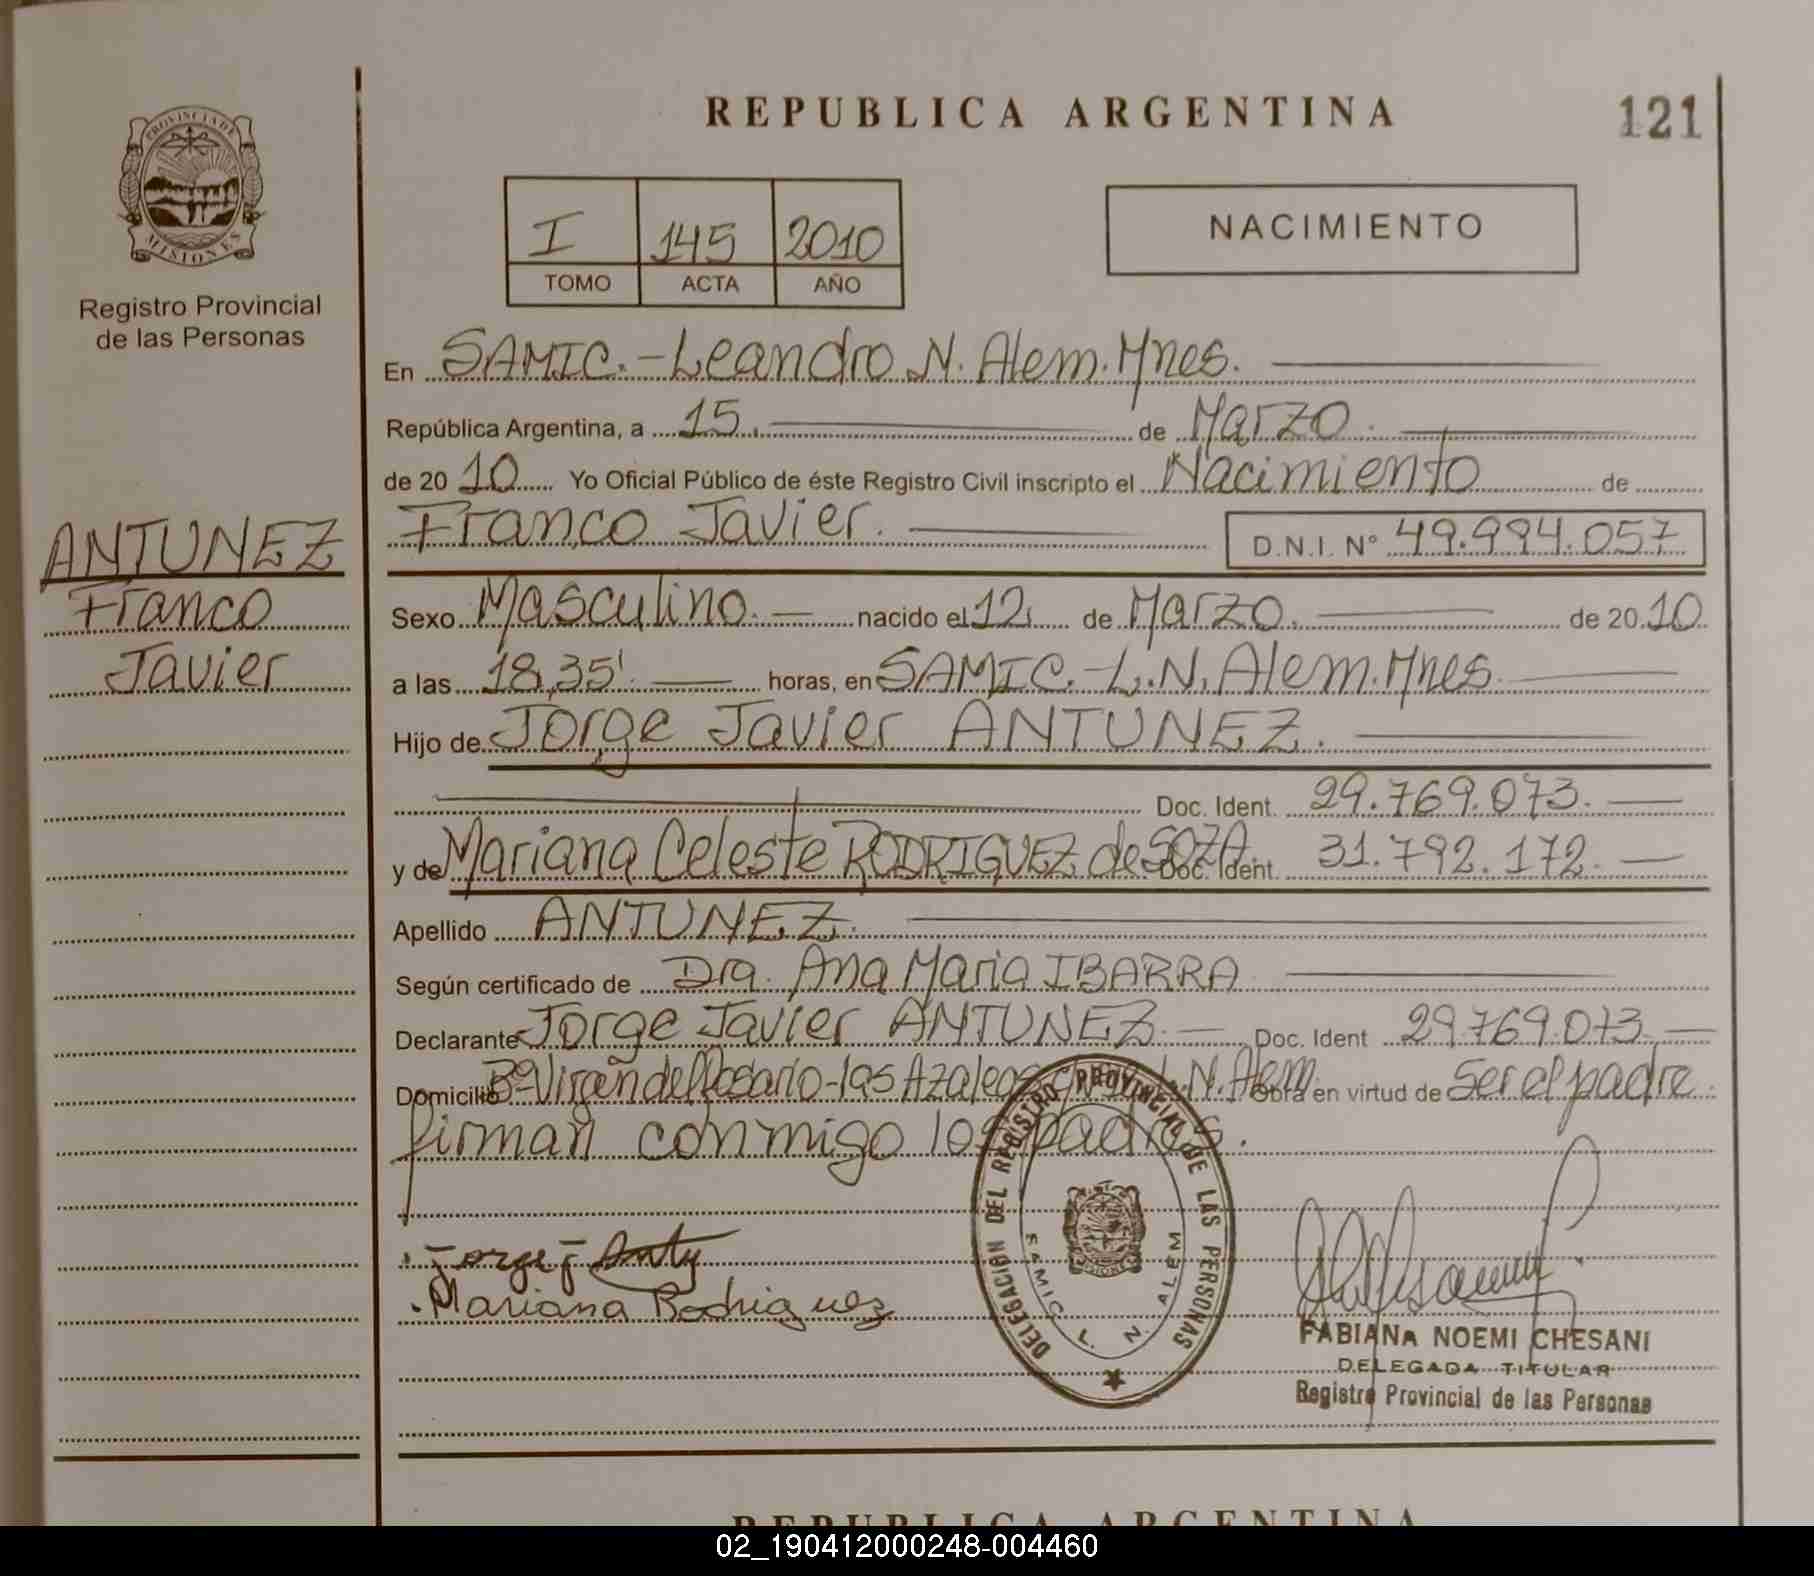 REPUBLICA ARGENTINA
121
PROVINCIA DE MISIONES
Registro Provincial
de las Personas
I 145 2010
TOMO ACTA AÑO
NACIMIENTO
En SAMIC.-Leandro N. Alem. Mnes.
República Argentina, a 15. de Marzo.
de 2010 Yo Oficial Público de éste Registro Civil inscripto el Nacimiento de
Franco Javier. D.N.I. Nº 49.994.057
ANTUNEZ
Franco
Javier
Sexo Masculino. nacido el 12. de Marzo. de 2010.
a las 18,35' horas, en SAMIC.-L.N. Alem. Mnes.
Hijo de Jorge Javier ANTUNEZ.
Doc. Ident. 29.769.073.
y de Mariana Celeste RODRIGUEZ de SOZA. Doc. Ident. 31.792.172.
Apellido ANTUNEZ.
Según certificado de Dra. Ana Maria IBARRA
Declarante Jorge Javier ANTUNEZ. Doc. Ident 29.769.073.
Domicilio Bº Virgen del Rosario-las Azaleas L.N. Alem. Obra en virtud de Ser el padre.
firman conmigo los padres.
Jorge J Anty
Mariana Rodriguez
DELEGACION DEL REGISTRO PROVINCIAL DE LAS PERSONAS
SAMIC L. N. ALEM
FABIANA NOEMI CHESANI
DELEGADA TITULAR
Registro Provincial de las Personas
REPUBLICA ARGENTINA
02_190412000248-004460